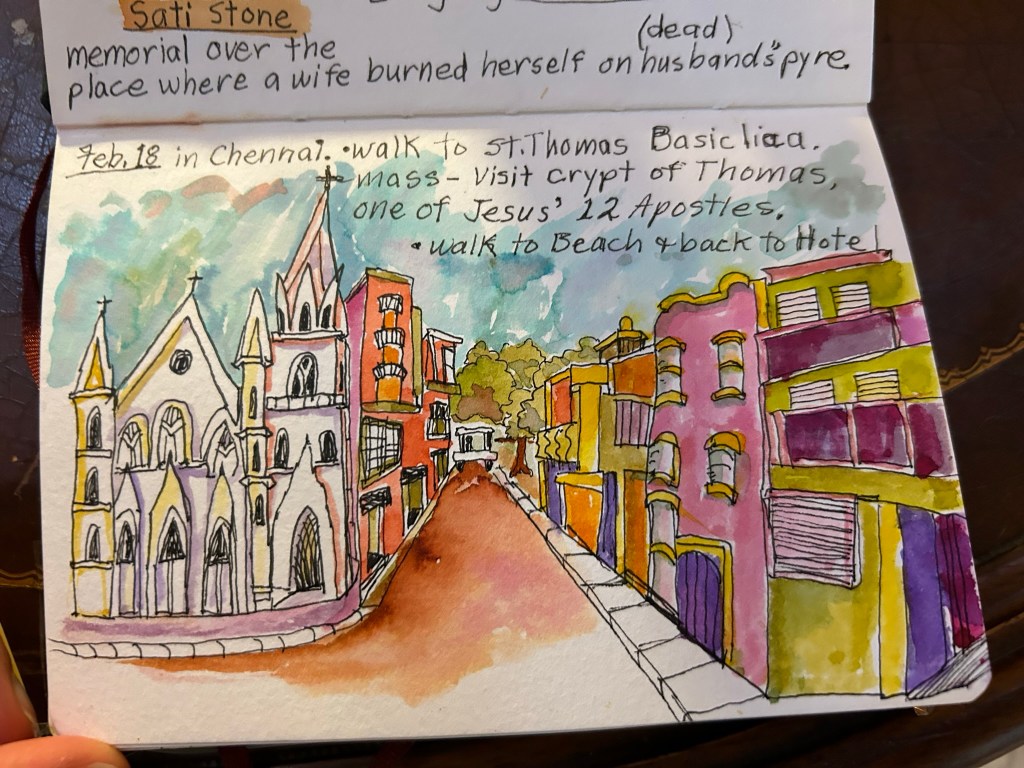 Sati Stone
(dead)
memorial over the
place where a wife burned herself on husband's pyre.
Feb. 18 in Chennai. • walk to St. Thomas Basiclica.
mass - Visit crypt of Thomas,
one of Jesus' 12 Apostles.
• walk to Beach & back to Hotel